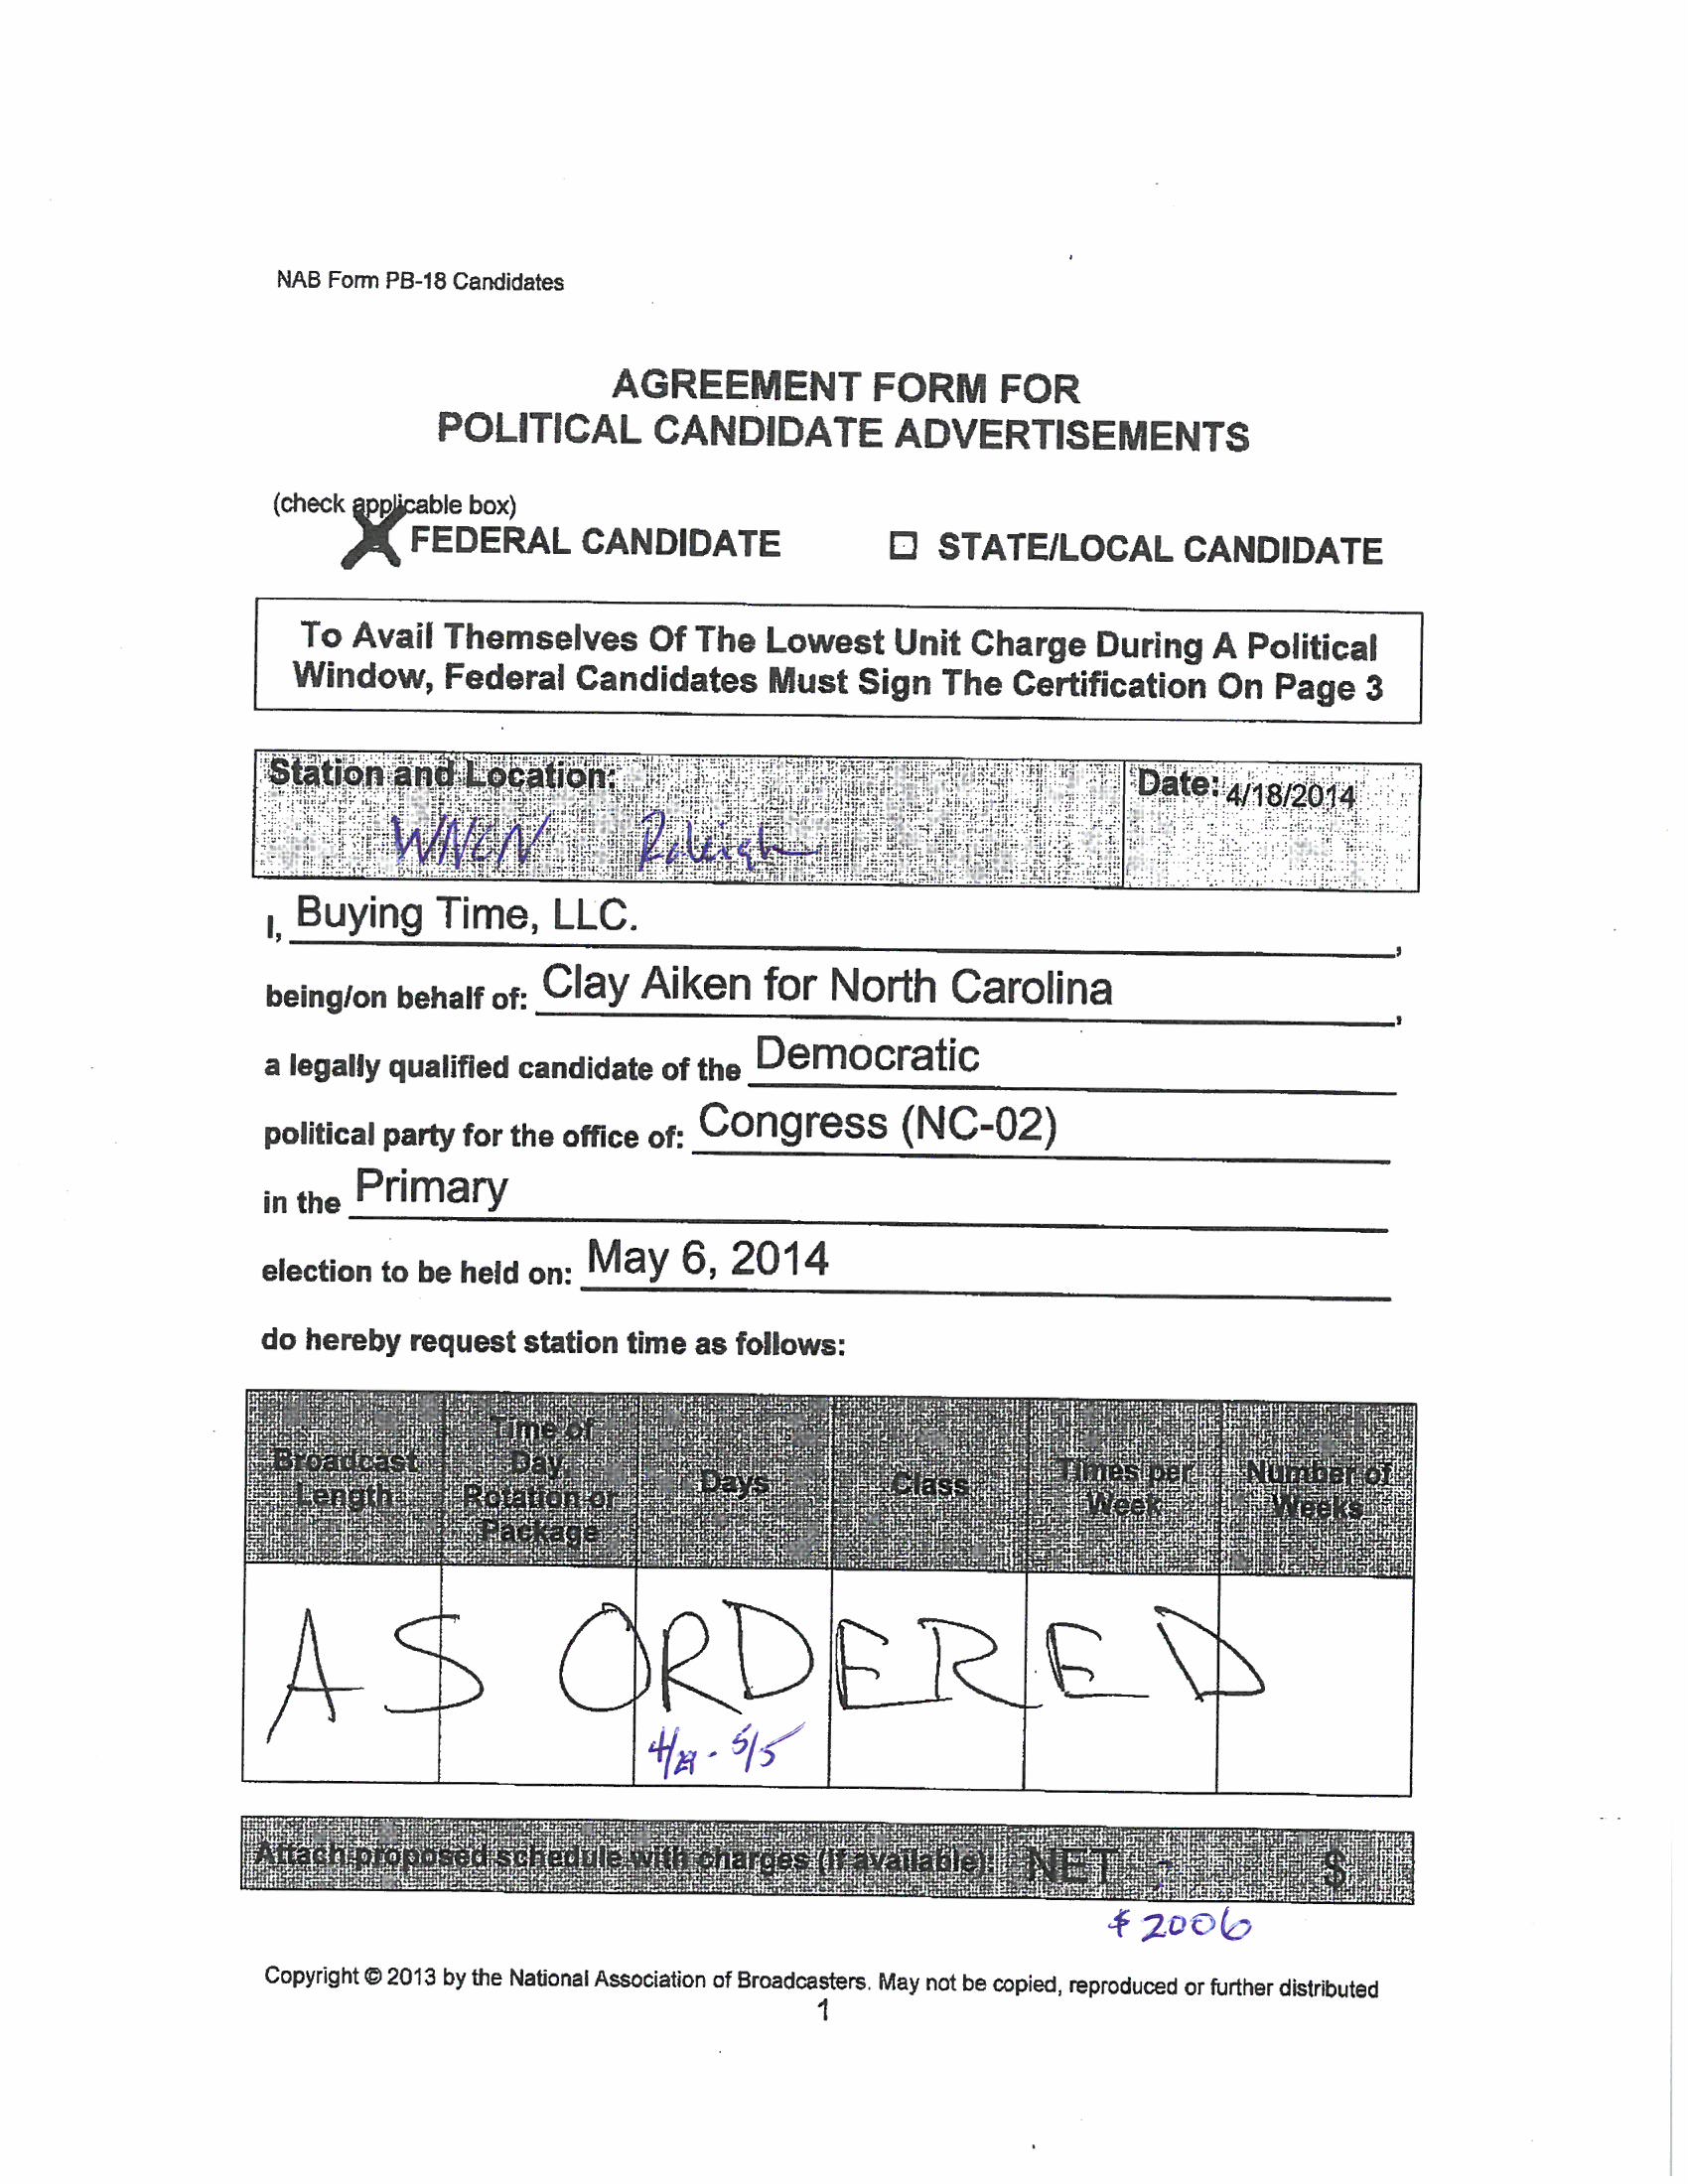 NAB Form PB-18 Candidates
AGREEMENT FORM FOR
POLITICAL CANDIDATE ADVERTISEMENTS
(check applicable box)
X FEDERAL CANDIDATE ☐ STATE/LOCAL CANDIDATE
To Avail Themselves Of The Lowest Unit Charge During A Political
Window, Federal Candidates Must Sign The Certification On Page 3
Station and Location: Date: 4/18/2014
WNCN Raleigh
I, Buying Time, LLC.,
being/on behalf of: Clay Aiken for North Carolina,
a legally qualified candidate of the Democratic
political party for the office of: Congress (NC-02)
in the Primary
election to be held on: May 6, 2014
do hereby request station time as follows:
Broadcast Length
Time of Day, Rotation or Package
Days
Class
Times per Week
Number of Weeks
AS ORDERED
- 5/5
Attach proposed schedule with charges (if available): NET $
$2006
Copyright © 2013 by the National Association of Broadcasters. May not be copied, reproduced or further distributed
1